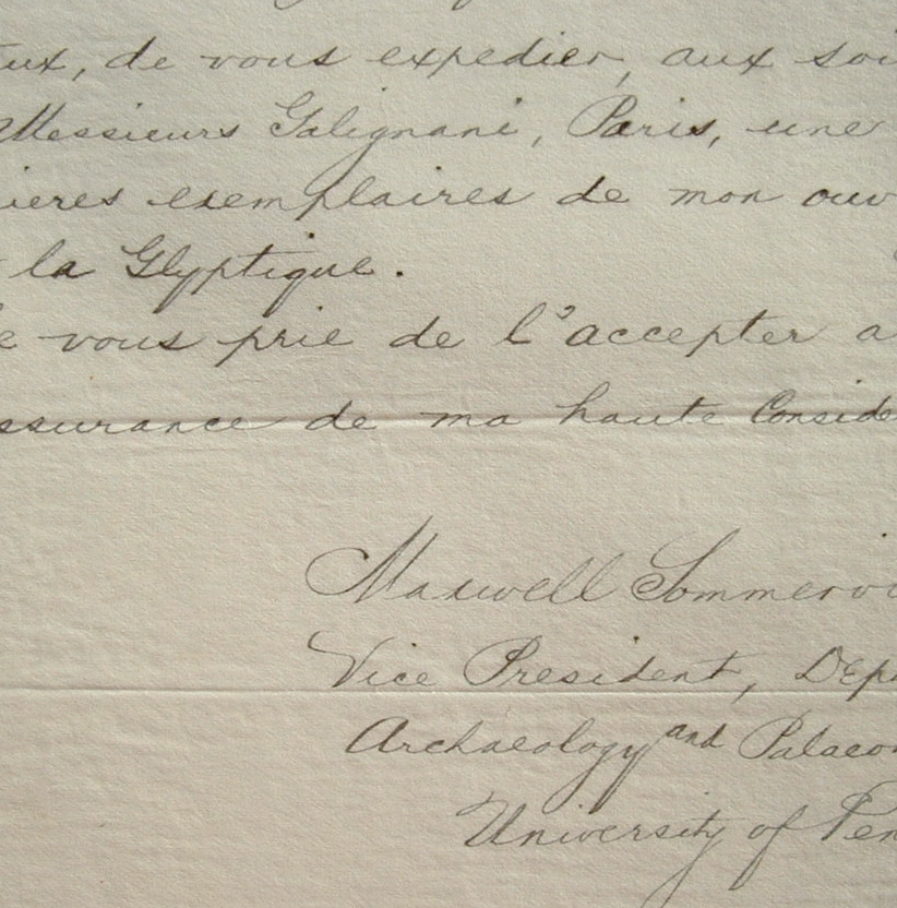 ux, de vous expedier, aux soi
Messieurs Galignani, Paris, une
ieres exemplaires de mon ouv
la Glyptique.
e vous prie de l'accepter a
ssurance de ma haute Conside
Maxwell Sommervi
Vice President, Dep
Archaeology and Palaeon
University of Pen